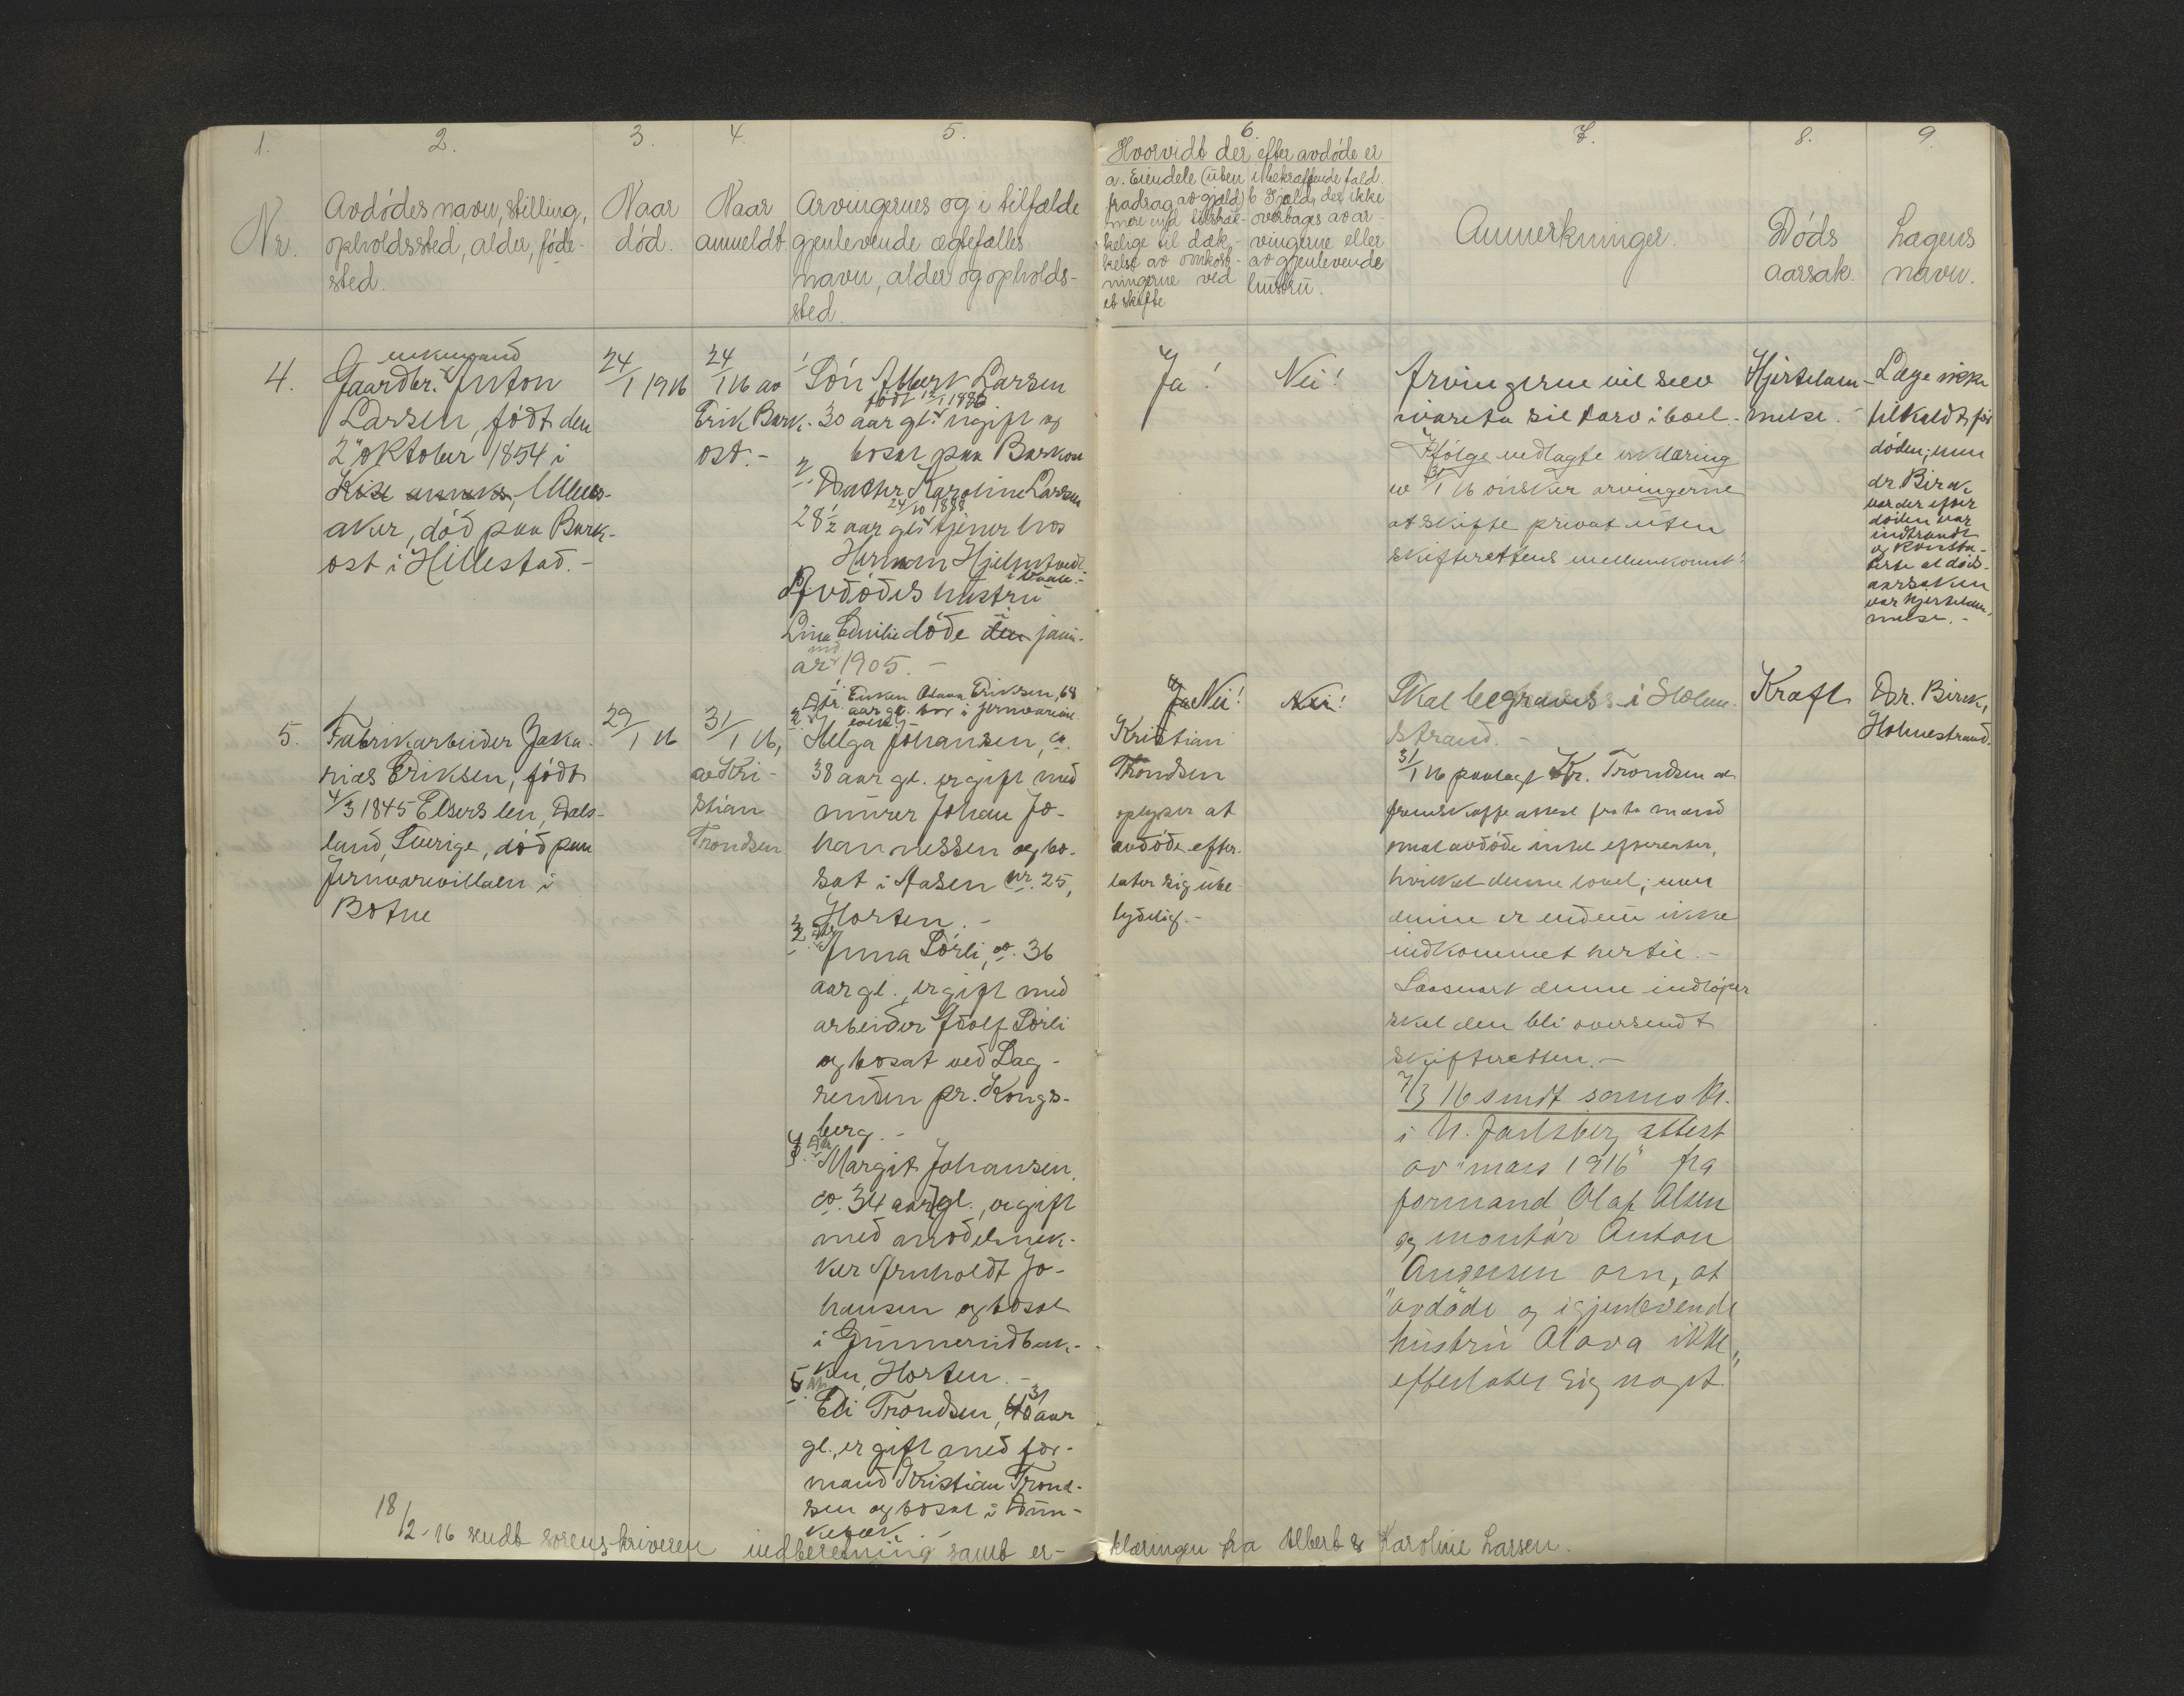 1.
2.
3.
4.
5.
Nr.
Avdödes navn, stilling,
opholdssted, alder, föde-
sted.
Naar
död.
Naar
anmeldt.
Arvingernes og i tilfælde
gjenlevende ægtefælles
navn, alder og opholds-
sted.
6.
Hvorvidt der efter avdöde er
a. Eiendele (uten
fradrag av gjeld)
mere end tilstræk-
kelige til dæk-
kelse av omkost-
ningerne ved
et skifte
i bekræftende fald.
b Gjæld, der ikke
overtages av ar-
vingerne eller
av gjenlevende
hustru.
7.
Anmerkninger.
8.
Döds
aarsak.
9.
Lægens
navn.
4.
enkemand
Gaardbr. Anton
Larsen, födt den
2 oktober 1854 i
Ullens-
aker, död paa Bark-
ost i Hillestad. -
24/1 1916
24/1 16 av
Erik Bark-
ost. -
1
Sön Albert Larsen
födt 12/1 1886
30 aar gl. ugift og
bosat paa Barkon
2
Datter Karoline Larsen
24/10 1888
28 1/2 aar gl. tjener hos
Herman Hjelmtvedt
i Vaale. -
Avdödes hustru
Lina Emilie döde i janu-
ar md. 1905. -
Ja!
Nei!
Arvingerne vil selv
ivareta sit tarv i boet. -
Ifölge vedlagte erklæring
av 31/1 16 önsker arvingerne
at skifte privat uten
skifterettens mellemkomst!
Hjertelam-
melse. -
Læge ikke
tilkaldt för
döden; men
dr Birck
var der efter
döden var
indtraadt
og konsta-
terte at döds-
aarsaken
var hjertelam-
melse. -
5.
Fabrikarbeider Zaka-
rias Eriksen, födt
4/3 1845 Elsers len, Dals-
land, Sverige, död paa
Jernvarevillaen i
Botne
29/1 16
31/1 16,
av Kri-
stian
Trondsen
1. Enken Olava Eriksen, 68
aar gl. bor i jernvarevil-
laen. -
2. Dtr. Helga Johansen, ca.
38 aar gl. er gift med
murer Johan Jo-
hannessen og bo-
sat i Aasen Nr. 25,
Horten. -
3. Dtr
Anna Sörli, ca. 36
aar gl., er gift med
arbeider Adolf Sörli
og bosat ved Sag-
renden pr. Kongs-
berg. -
4. Dtr
Margit Johansen,
ca. 34 aar gl., er gift
med modelsnek-
ker Arnholdt Jo-
hansen og bosat
i Gunnerudbak-
ken, Horten. -
5. Dtr
Eli Trondsen, 31 aar
gl., er gift med for-
mand Kristian Trond-
sen og bosat i Dun-
kebæk. -
Ja Nei!
Kristian
Trondsen
oplyser at
avdöde efter-
later sig ube-
tydelig. -
Nei!
Skal begraves i Holme-
strand. -
31/1 16 paalagt Kr. Trondsen at
fremskaffe attest fra to mænd
om at avdöde intet efterlater,
hvilket denne lovet; men
denne er endnu ikke
indkommet hertil. -
Saasnart denne indlöper
skal den bli oversendt
skifteretten. -
7/3 16 sendt sorenskr.
i N. Jarlsberg attest
av "mars 1916" fra
formand Olaf Olsen
og montör Anton
Andersen om, at
"avdöde og igjenlevende
hustru Olava ikke
efterlater sig noget."
Kræft
Dr. Birck,
Holmestrand.
18/2-16 sendt sorenskriveren indberetning samt er-klæringen fra Albert & Karoline Larsen.